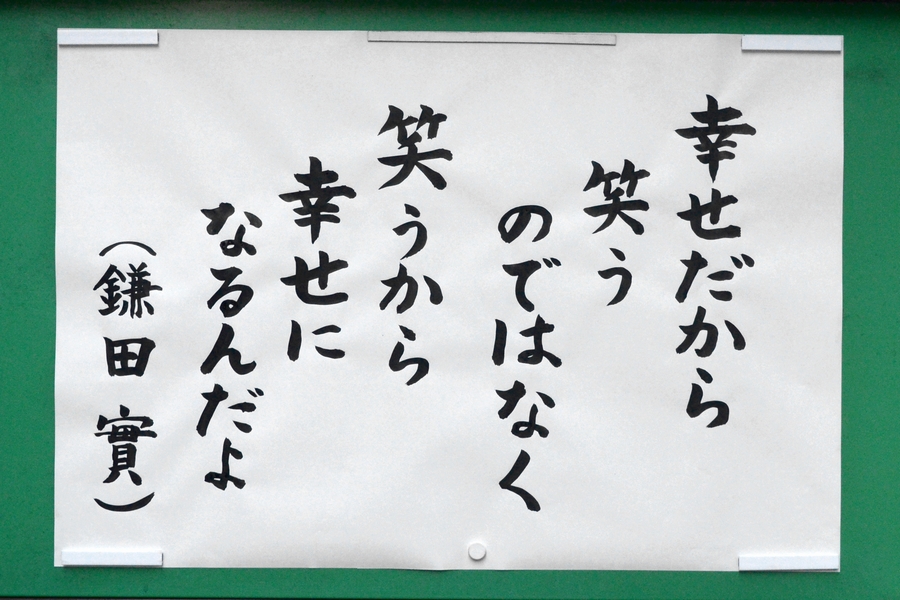 幸せだから
笑う
のではなく
笑うから
幸せに
なるんだよ
（鎌田 實）